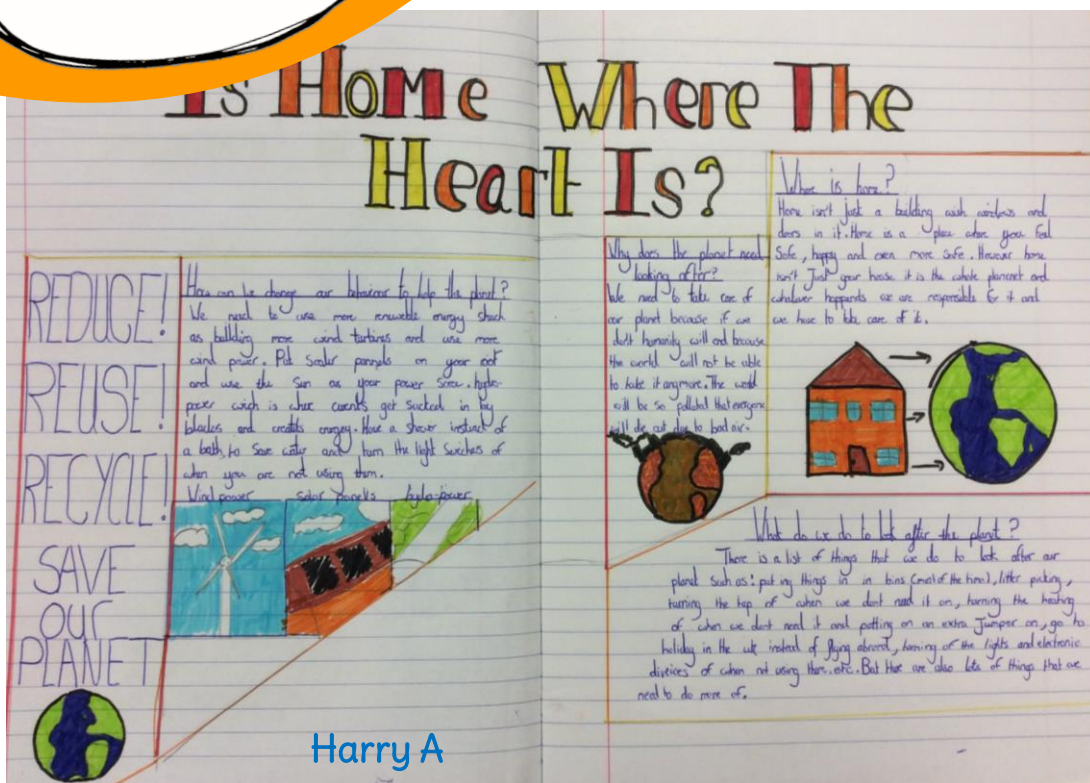 Is Home Where The
Heart Is?
REDUCE!
REUSE!
RECYCLE!
SAVE
OUR
PLANET
How can we change our behaviour to help the planet?
We need to use more renewable energy shuch
as building more wind turbines and use more
wind power. Put Soler pannels on your roof
and use the Sun as your power . hydro-
power wich is when get sucked in by
blades and creatits energey. Have a shower insteact of
a bath, to save water and turn the light swiches of
when you are not using them.
Wind power solar panels hydro-power
Why does the planet need
looking after?
We need to take care of
our planet because if we
don't humanity will end because
the world will not be able
to take it anymore. The world
will be so polluted that everyone
will die out due to bad air.
Where is home?
Home isn't just a building with windows and
doors in it. Home is a place where you feel
Safe, happy and even more safe. However home
isn't Just your house it is the whole plancnet and
whatever happends we are responsible for it and
we have to take care of it.
What do we do to look after the planet?
There is a list of things that we do to look after our
planet such as: put ing things in in bins (most of the time), litter picking,
turning the tap of when we dont need it on, turning the heating
of when we dont need it and putting on an extra Jumper on, go to
holiday in the uk instead of flying abroad, turning of the lights and electronic
diveices of when not using them.etc. But there are also lots of things that we
need to do more of.
Harry A